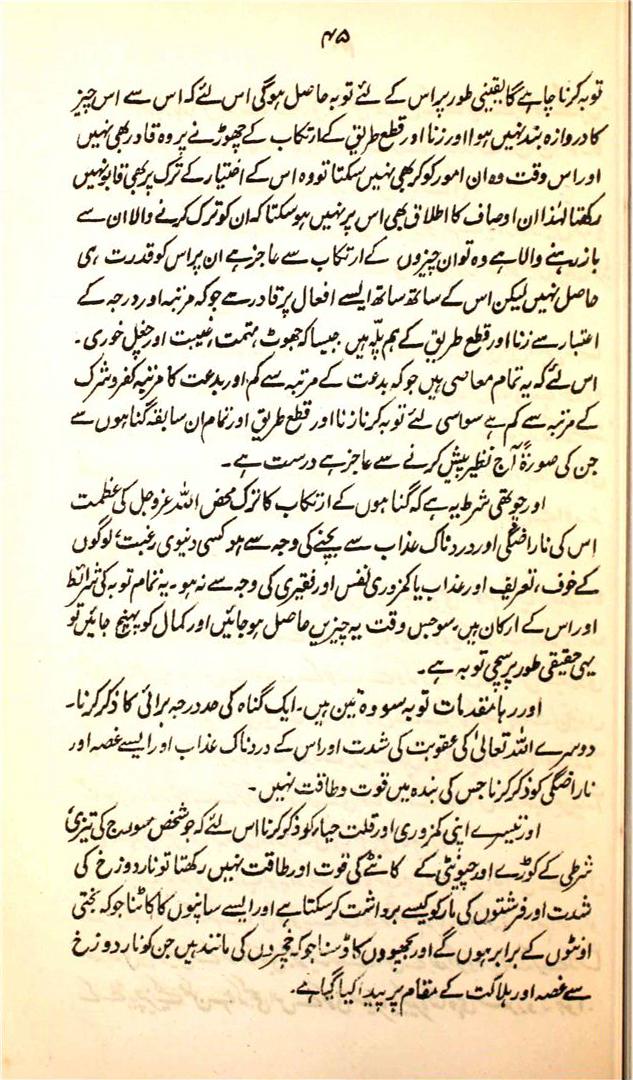 ۴۵
توبہ کرنا چاہے گا یقینی طور پر اس کے لئے توبہ حاصل ہوگی اس لئے کہ اس سے اس چیز
کا دروازہ بند نہیں ہوا اور زنا اور قطع طریق کے ارتکاب کے چھوڑنے پر وہ قادر بھی نہیں
اور اس وقت وہ ان امور کو کر بھی نہیں سکتا تو وہ اس کے اختیار کے ترک پر بھی قابو نہیں
رکھتا لہٰذا ان اوصاف کا اطلاق بھی اس پر نہیں ہو سکتا کہ ان کو ترک کرنے والا ان سے
باز رہنے والا ہے وہ تو ان چیزوں کے ارتکاب سے عاجز ہے ان پر اس کو قدرت ہی
حاصل نہیں لیکن اس کے ساتھ ساتھ ایسے افعال پر قادر ہے جو کہ مرتبہ اور درجہ کے
اعتبار سے زنا اور قطع طریق کے ہم پلّہ ہیں جیسا کہ جھوٹ، تہمت، غیبت اور چغل خوری۔
اس لئے کہ یہ تمام معاصی ہیں جو کہ بدعت کے مرتبہ سے کم اور بدعت کا مرتبہ کفر و شرک
کے مرتبہ سے کم ہے سو اسی لئے توبہ کرنا زنا اور قطع طریق اور تمام ان سابقہ گناہوں سے
جن کی صورۃً آج نظیر پیش کرنے سے عاجز ہے درست ہے۔
اور چوتھی شرط یہ ہے کہ گناہوں کے ارتکاب کا ترک محض اللہ عزوجل کی عظمت
اس کی ناراضگی اور دردناک عذاب سے بچنے کی وجہ سے ہو کسی دنیوی رغبت، لوگوں
کے خوف، تعریف اور عذاب یا کمزوری نفس اور فقیری کی وجہ سے نہ ہو۔ یہ تمام توبہ کی شرائط
اور اس کے ارکان ہیں۔ سو جس وقت یہ چیزیں حاصل ہو جائیں اور کمال کو پہنچ جائیں تو
یہی حقیقی طور پر سچی توبہ ہے۔
اور رہا مقدمات توبہ سو وہ تین ہیں۔ ایک گناہ کی حد درجہ برائی کا ذکر کرنا۔
دوسرے اللہ تعالیٰ کی عقوبت کی شدت اور اس کے دردناک عذاب اور ایسے غصہ اور
ناراضگی کو ذکر کرنا جس کی بندہ میں قوت و طاقت نہیں۔
اور تیسرے اپنی کمزوری اور قلت حیاء کو ذکر کرنا اس لئے کہ جو شخص سورج کی تیزی
شرطی کے کوڑے اور چیونٹی کے کاٹنے کی قوت اور طاقت نہیں رکھتا تو نار دوزخ کی
شدت اور فرشتوں کی مار کو کیسے برداشت کر سکتا ہے اور ایسے سانپوں کا کاٹنا جو کہ بختی
اونٹوں کے برابر ہوں گے اور بچھوؤں کا ڈسنا جو کہ خچروں کی مانند ہیں جن کو نار دوزخ
سے غصہ اور ہلاکت کے مقام پر پیدا کیا گیا ہے۔